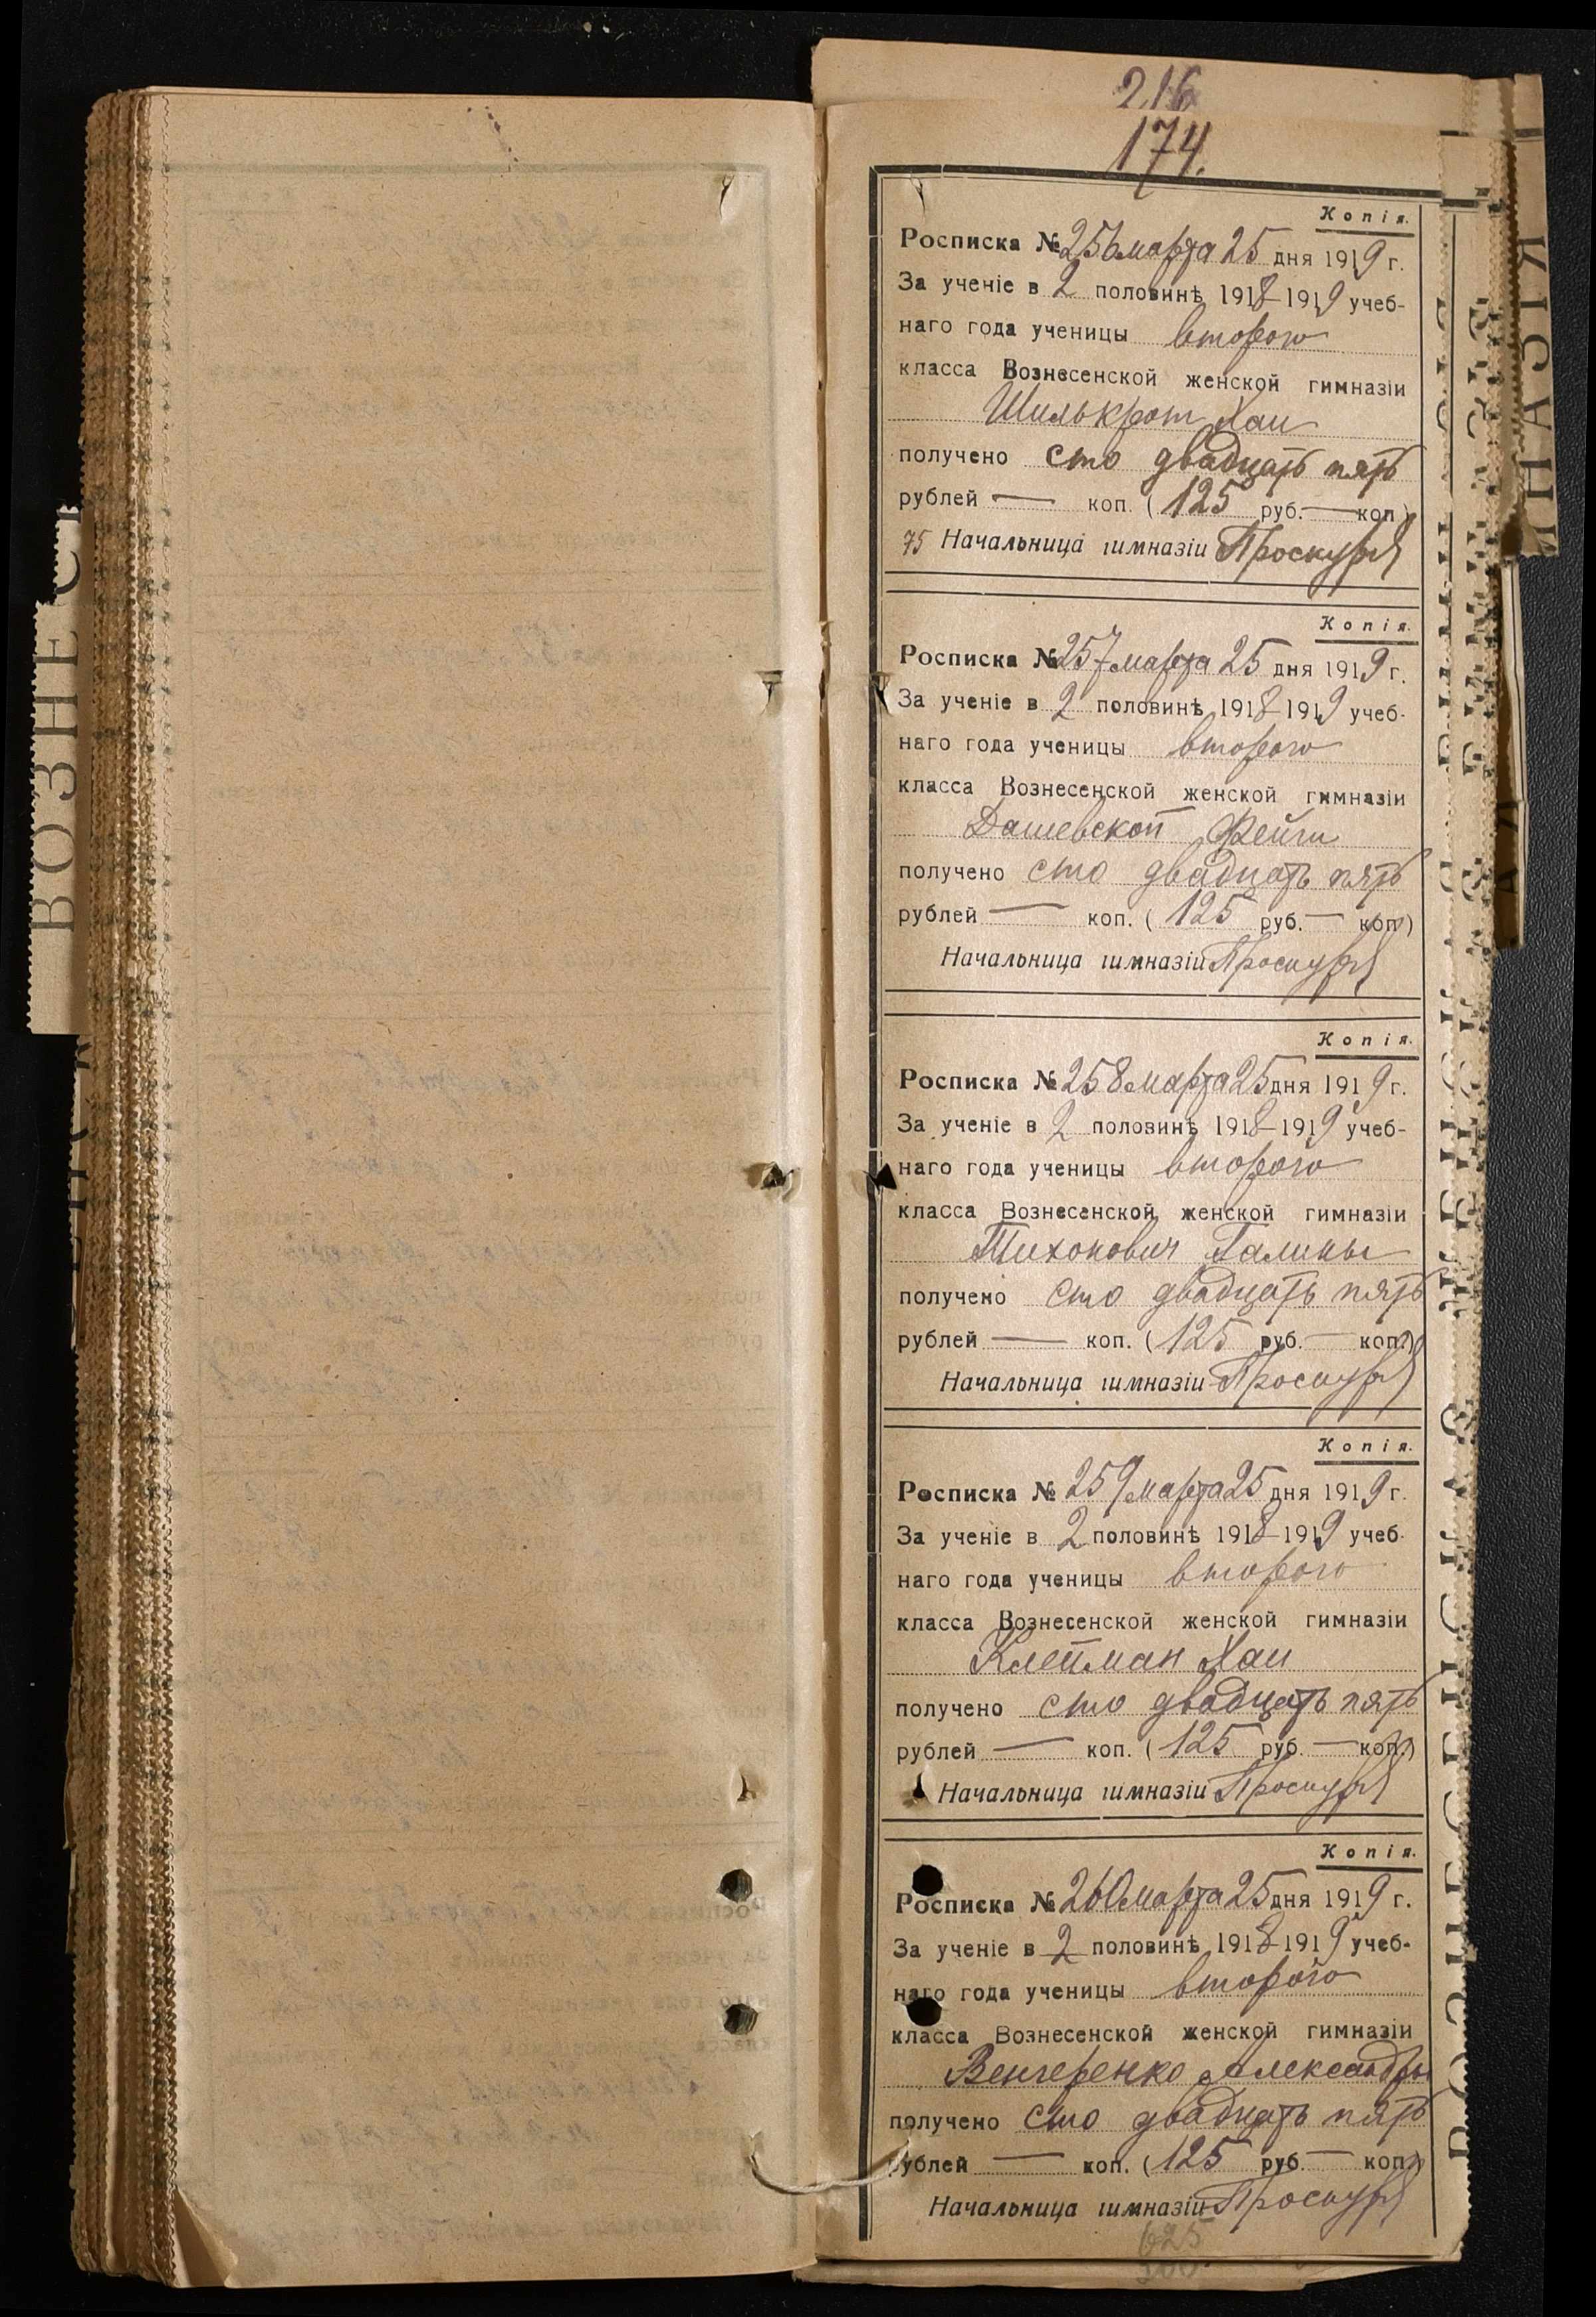 216
174.
Копія.
Росписка № 256 марта 25 дня 1919 г.
За ученіе в 2 половинѣ 1918-1919 учеб-
наго года ученицы второго
класса Вознесенской женской гимназіи
Шилькрот Хаи
получено сто двадцать пять
рублей — коп. (125 руб. — коп.)
75 Начальница гимназіи Проскура
Копія.
Росписка № 257 марта 25 дня 1919 г.
За ученіе в 2 половинѣ 1918-1919 учеб-
наго года ученицы второго
класса Вознесенской женской гимназіи
Дашевской Фейги
получено сто двадцать пять
рублей — коп. (125 руб. — коп.)
Начальница гимназіи Проскура
Копія.
Росписка № 258 марта 25 дня 1919 г.
За ученіе в 2 половинѣ 1918-1919 учеб-
наго года ученицы второго
класса Вознесенской женской гимназіи
Тихонович Галины
получено сто двадцать пять
рублей — коп. (125 руб. — коп.)
Начальница гимназіи Проскура
Копія.
Росписка № 259 марта 25 дня 1919 г.
За ученіе в 2 половинѣ 1918-1919 учеб-
наго года ученицы второго
класса Вознесенской женской гимназіи
Клейман Хаи
получено сто двадцать пять
рублей — коп. (125 руб. — коп.)
Начальница гимназіи Проскура
Копія.
Росписка № 260 марта 25 дня 1919 г.
За ученіе в 2 половинѣ 1918-1919 учеб-
наго года ученицы второго
класса Вознесенской женской гимназіи
Венгеренко Александры
получено сто двадцать пять
рублей — коп. (125 руб. — коп.)
Начальница гимназіи Проскура
625
ВОЗНЕС